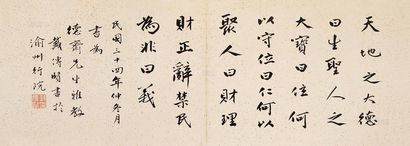 天地之大德
曰生聖人之
大寶曰位何
以守位曰仁何以
聚人曰財理
財正辭禁民
為非曰義
民國三十四年仲冬月
書為
德齋先生雅教
戴傳賢書於
渝州行院